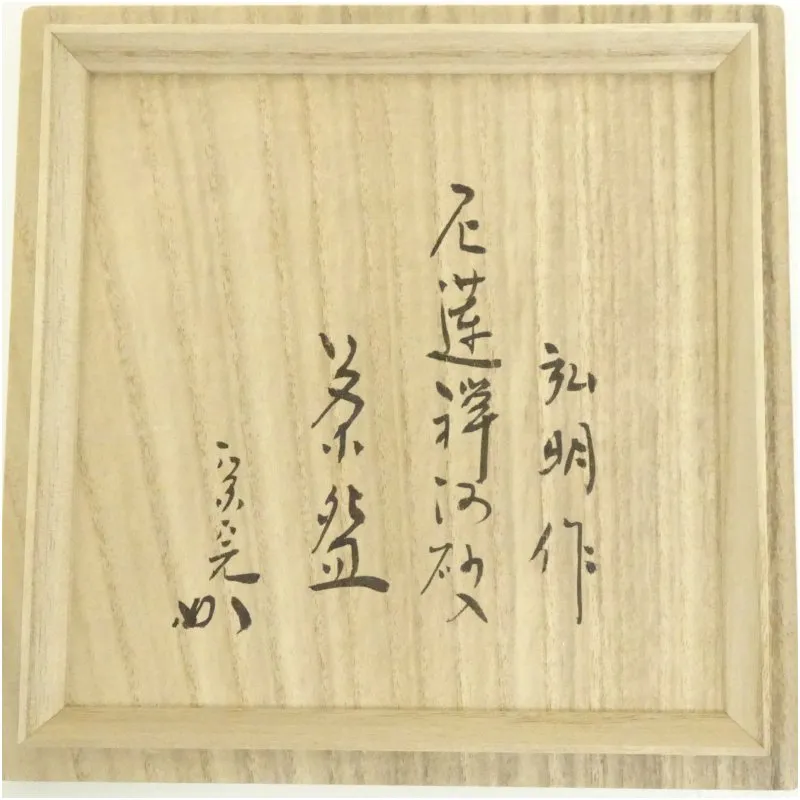 弘明作
尼蓮禅河砂入
茶盌
宗完